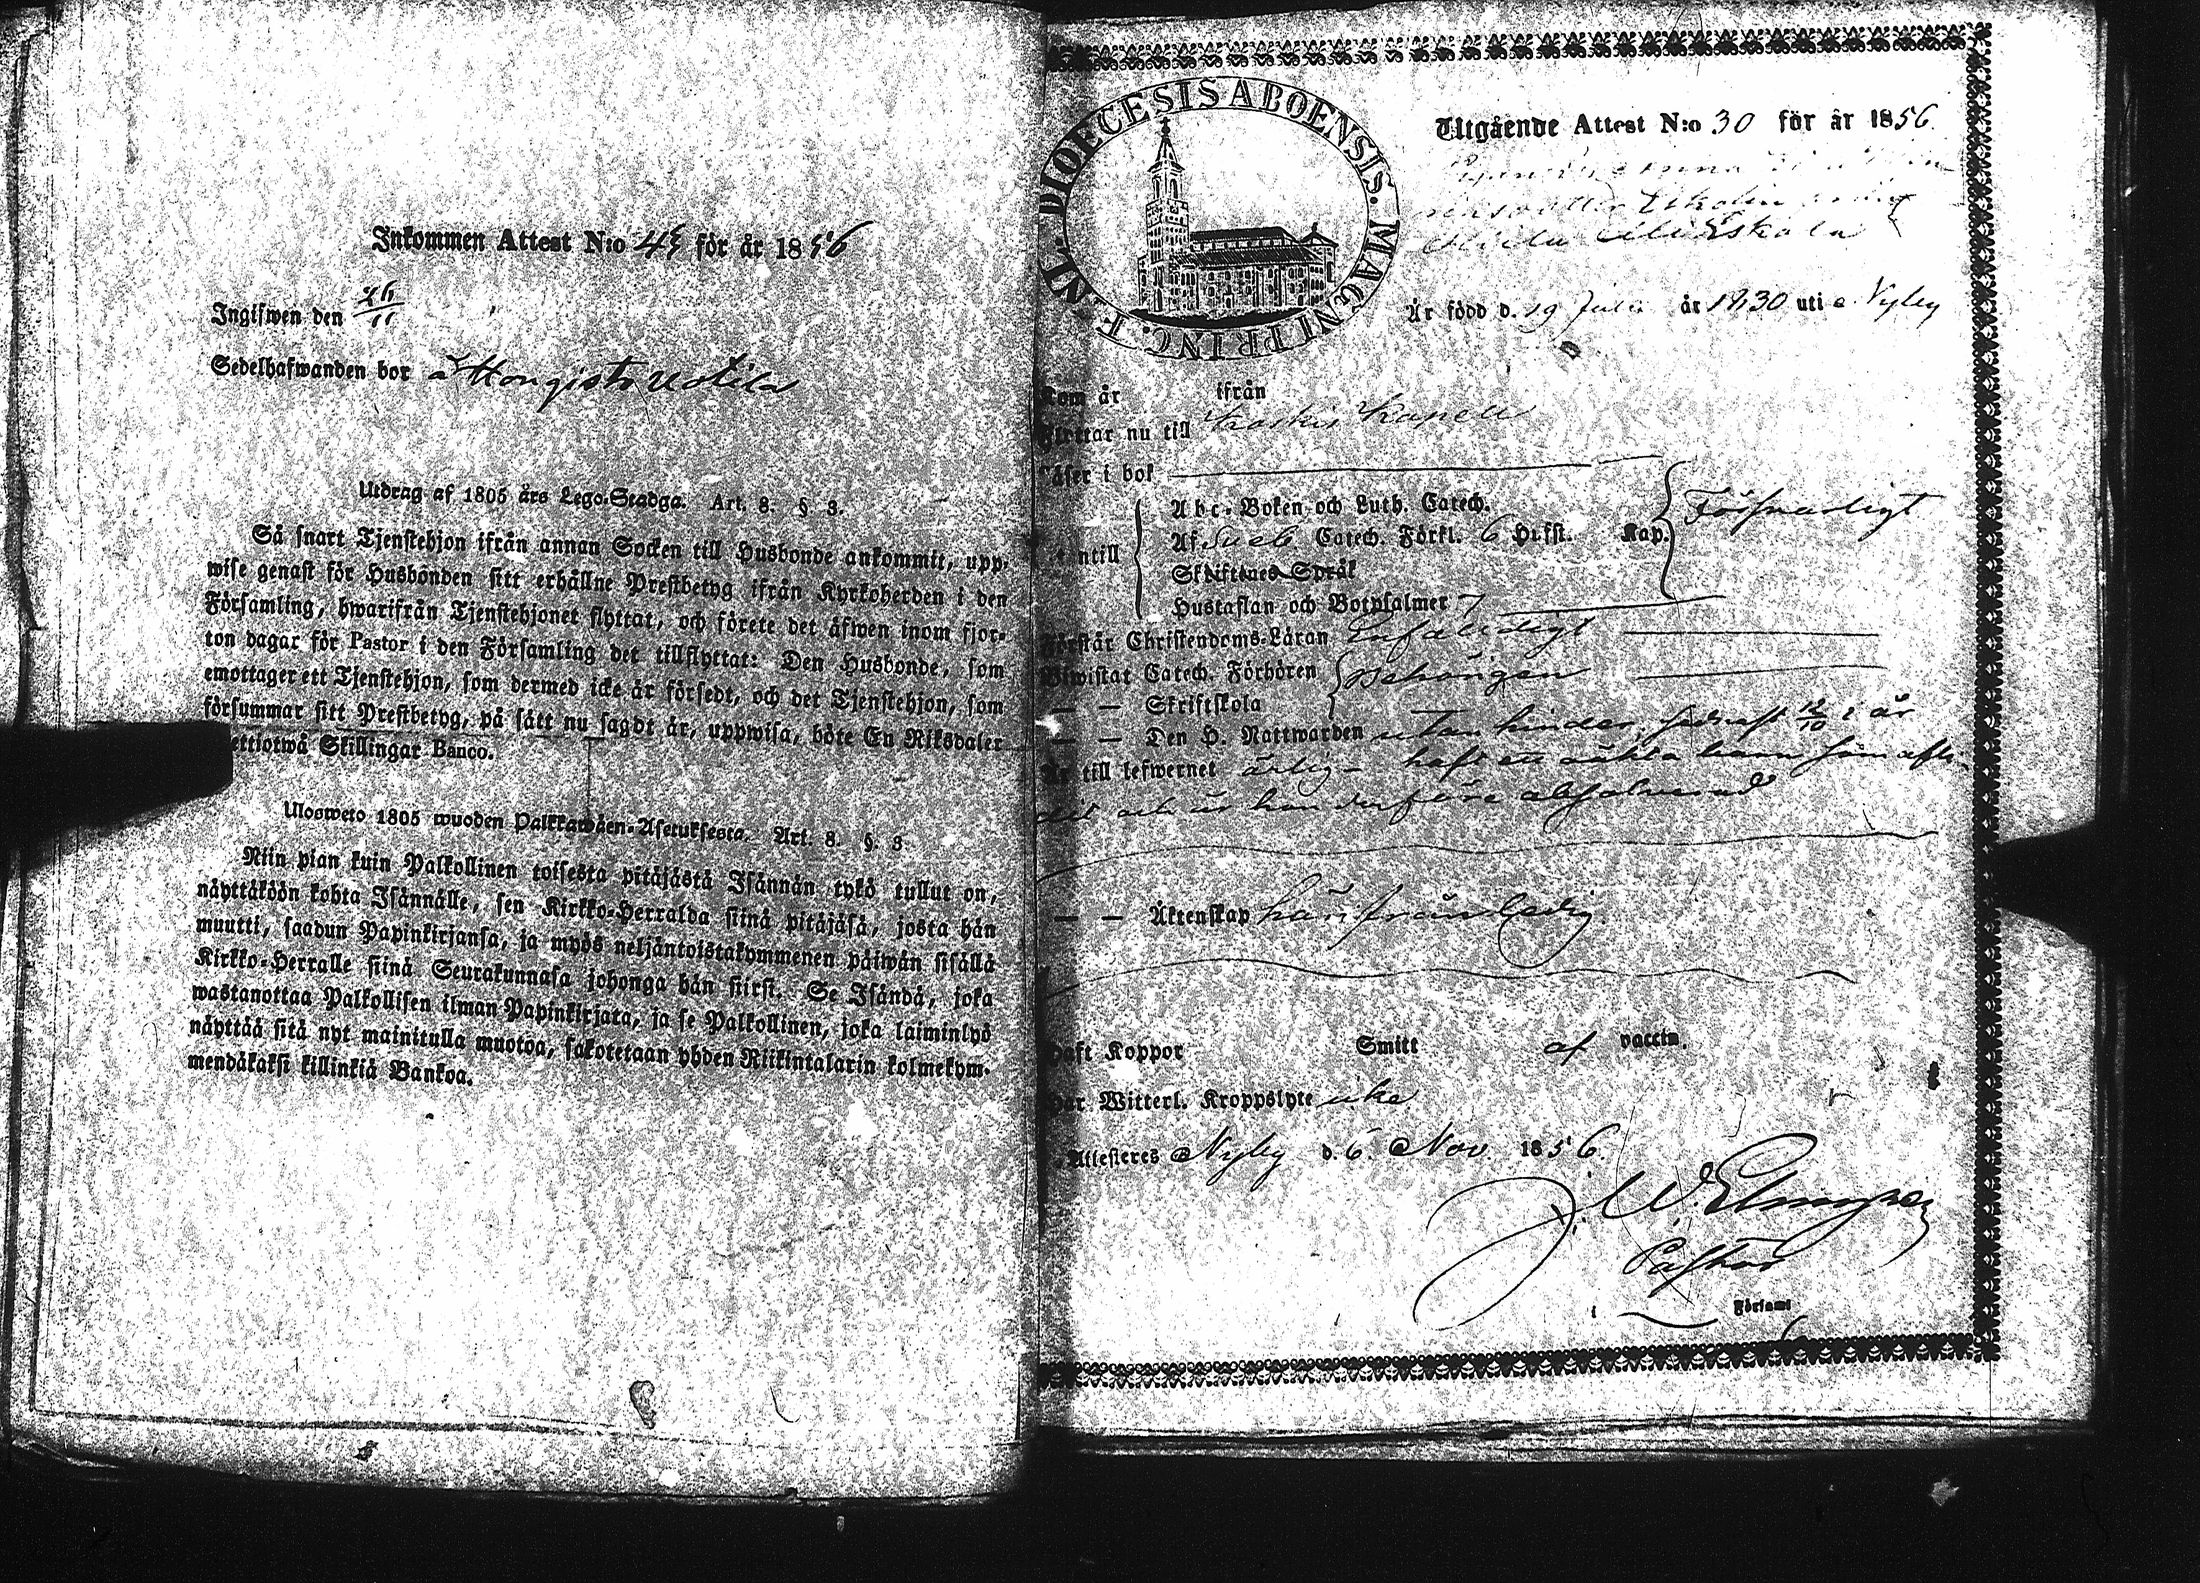 Inkommen Attest N:o för år 1856
Ingifwen den
Sedelhafwanden bor å
Utdrag af 1805 års Lego-Stadga. Art. 8. § 3.
Så snart Tjenstehjon ifrån annan Socken till Husbonde ankommit, upp-
wise genast för Husbonden sitt erhållne Prestbetyg ifrån Kyrkoherden i den
Församling, hwarifrån Tjenstehjonet flyttat, och förete det äfwen inom fjor-
ton dagar för Pastor i den Församling det tillflyttat: Den Husbonde, som
emottager ett Tjenstehjon, som dermed icke är försedt, och det Tjenstehjon, som
försummar sitt Prestbetyg, på sätt nu sagdt är, uppwisa, böte En Riksdaler
ettiotwå Skillingar Banco.
Ulosweto 1805 wuoden Palkkawäen-Asetuksesta. Art. 8. §. 3.
Niin pian kuin Palkollinen toisesta pitäjästä Isännän tykö tullut on,
näyttäköön kohta Isännälle, sen Kirkko-Herralda siinä pitäjäsä, josta hän
muutti, saadun Papinkirjansa, ja myös neljäntoistakymmenen päiwän sisällä
Kirkko-Herralle siinä Seurakunnasa johonga hän siirsi. Se Isändä, joka
wastanottaa Palkollisen ilman Papinkirjata, ja se Palkollinen, joka laiminlyö
näyttää sitä nyt mainitulla muotoa, sakotetaan yhden Riikintalarin kolmekym-
mendäkaksi killinkiä Bankoa.
DIOECESIS ABOENSIS. MAGNI PRINC. FENL.
Utgående Attest N:o 30 för år 1856.
Är född d. 19 Juli år 1830 uti Nyby
Kom år ifrån
Flyttar nu till Koskis Kapell
Läser i bok
Abc-Boken och Luth. Catech.
Af Sveb. Catech. Förkl. 6 H.fst. Kap. Försvarligt
Utantill
Skriftenes Språk
Hustaflan och Botpsalmer 7
Förstår Christendoms-Läran Enfaldigt
Biwistat Catech. Förhören Behörigen
— — Skriftskola
— — Den H. Nattwarden utan hinder, sednast 12/10 i år
Är till lefwernet ärlig – haft ett oäkta barn som afli-
dit och är hon derföre absolverad
— — Äktenskap härifrån ledig
Haft Koppor Smitt af vaccin.
Har Witterl. Kroppslyte icke
Attesteres Nyby d. 6 Nov. 1856.
Pastor
Församl